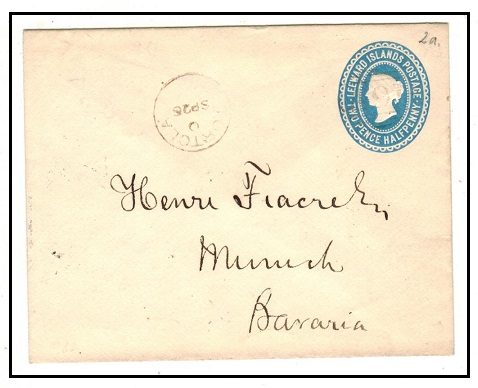 2a.
LEEWARD ISLANDS POSTAGE
TWO PENCE HALFPENNY
TORTOLA
C
SP 28
Henri Fiacre Esq
Munich
Bavaria